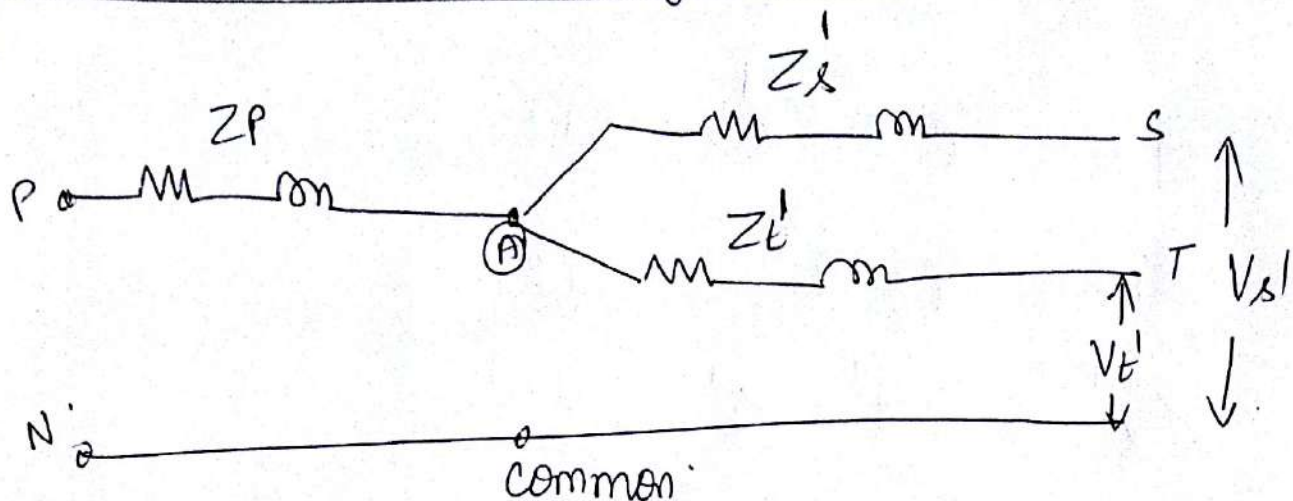 Zs'
ZP
P
S
Zt'
A
T
Vs'
Vt'
N
common